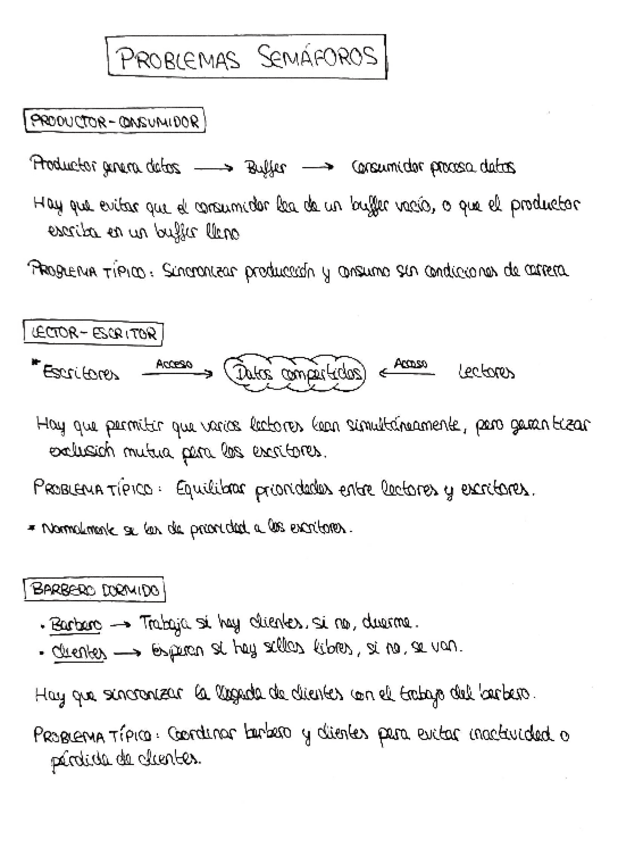 PROBLEMAS SEMÁFOROS
PRODUCTOR-CONSUMIDOR
Productor genera datos → Buffer → Consumidor procesa datos
Hay que evitar que el consumidor lea de un buffer vacío, o que el productor
escriba en un buffer lleno
PROBLEMA TÍPICO: Sincronizar producción y consumo sin condiciones de carrera
LECTOR-ESCRITOR
* Escritores Acceso → Datos compartidos ← Acceso Lectores
Hay que permitir que varios lectores lean simultáneamente, pero garantizar
exclusión mutua para los escritores.
PROBLEMA TÍPICO: Equilibrar prioridades entre lectores y escritores.
* Normalmente se les da prioridad a los escritores.
BARBERO DORMIDO
• Barbero → Trabaja si hay clientes, si no, duerme.
• Clientes → Esperan si hay sillas libres, si no, se van.
Hay que sincronizar la llegada de clientes con el trabajo del barbero.
PROBLEMA TÍPICO: Coordinar barbero y clientes para evitar inactividad o
pérdida de clientes.